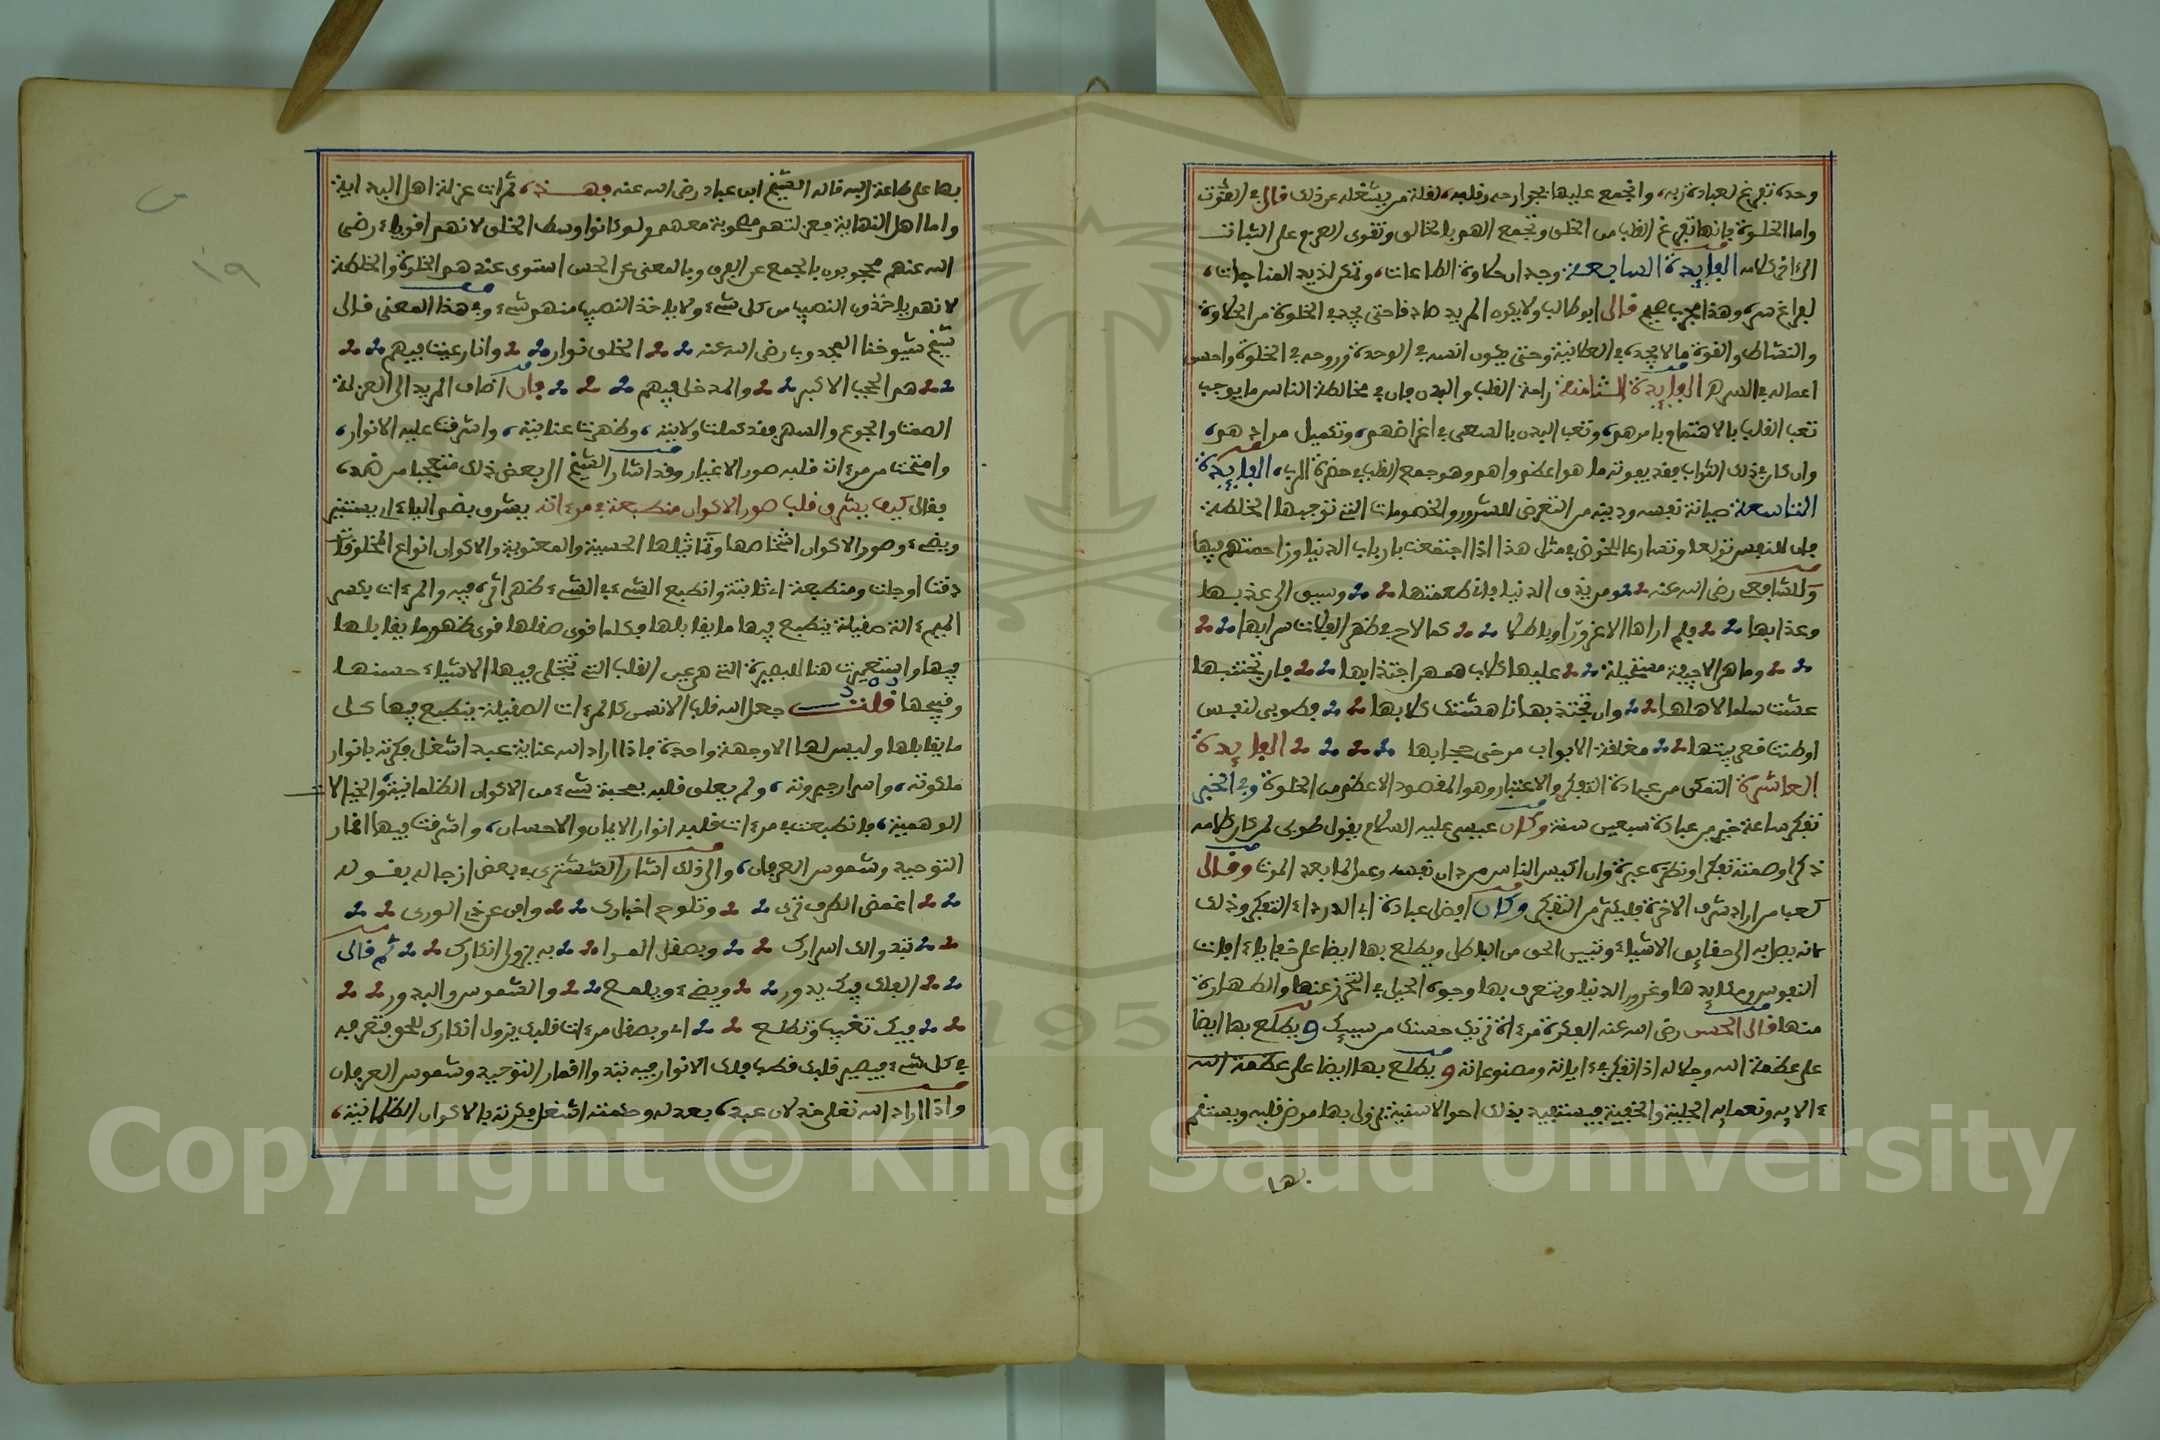 وحده تفرغ لعبادة ربه، وانجمع عليها بجوارحه وقلبه، لقلة من يشغله عن ذلك قال في القوت
واما الخلوة فانها تفرغ القلب من الخلق وتجمع الهم بالخالق وتقوى العزم على الثبات
الى اخر كلامه الفايدة السابعة وجدان حلاوة الطاعات، وتمكن لذيذ المناجات،
لفراغ سره وهذا مجرب صحيح قال ابو طالب ولا يكون المريد صادقا حتى يجد في الخلوة من الحلاوة
والنشاط والقوة ما لا يجده في العلانية وحتى يكون انسه في الوحدة وروحه في الخلوة واحسن
اعماله في السر هـ الفايدة الثامنة راحة القلب والبدن فان في مخالطة الناس ما يوجب
تعب القلب بالاهتمام بامرهم، وتعب البدن بالسعى في اغراضهم، وتكميل مرادهم،
وان كان في ذلك الثواب فقد يفوته ما هو اعظم واهم وهو جمع القلب في حضرة الرب، الفايدة
التاسعة صيانة نفسه ودينه من التعرض للشرور والخصومات التي توجبها الخلطة
فان للنفس تولعا وتسارعا للخوض في مثل هذا اذا اجتمعت بارباب الدنيا وزاحمتهم فيها
وللشافعي رضى الله عنه ومن يذق الدنيا فاني طعمتها وسيق الى عذبها
وعذابها فلم اراها الا غرورا وباطلا كما لاح في ظهر الفلات سرابها
وما هي الا جيفة مستحيلة عليها كلاب همهن اجتذابها فان تجتنبها
عشت سلما لاهلها وان تجتذبها ناهشتك كلابها فطوبى لنفس
اوطنت قعر بيتها مغلقة الابواب مرخى حجابها الفايدة
العاشرة التمكن من عبادة التفكر والاعتبار وهو المقصود الاعظم من الخلوة وفي الخبر
تفكر ساعة خير من عبادة سبعين سنة وكان عيسى عليه السلام يقول طوبى لمن كان كلامه
ذكرا وصمته تفكرا ونظره عبرة وان اكيس الناس من دان نفسه وعمل لما بعد الموت وقال
كعب من اراد شرف الاخرة فليكثر من التفكر وكان افضل عبادة ابي الدرداء التفكر وذلك
لانه يصل به الى حقايق الاشياء وتبيين الحق من الباطل ويطلع بها ايضا على خفايا ءافات
النفوس ومكايدها وغرور الدنيا ويتعرف بها وجوه الحيل في التحرز عنها والطهارة
منها قال الحسن رضى الله عنه الفكرة مرءاة تريك حسنك من سييك ويطلع بها ايضا
على عظمة الله وجلاله اذا تفكر في ءاياته ومصنوعاته ويطلع بها ايضا على عظمة الله
ءالايه ونعمايه الجلية والخفية فيستفيد بذلك احوالا سنية يزول بها مرض قلبه ويستقيم
بها
بها على طاعة ربه قاله الشيخ ابن عباد رضى الله عنه فهـذه، ثمرات عزلة اهل البداية
واما اهل النهاية فعزلتهم مصحوبة معهم ولو كانوا وسط الخلق لانهم اقوياء رضى
الله عنهم محجوبون بالجمع عن الفرق وبالمعنى عن الحس استوى عندهم الخلوة والخلطة
لانهم ياخذون النصيب من كل شيء ولا ياخذ النصيب منهم شيء وفي هذا المعنى قال
شيخ شيوخنا المجدوب رضى الله عنه الخلق نوار وانا رعيت فيهم
هم الحجب الاكبر والمدخل فيهم فان اضاف المريد الى العزلة
الصمت والجوع والسهر فقد كملت ولايته، وظهرت عنايته، واشرقت عليه الانوار،
وامتحت من مرءاة قلبه صور الاغيار وقد اشار الشيخ الى بعض ذلك متعجبا من ضده،
فقال كيف يشرق قلب صور الاكوان منطبعة في مرءاته يشرق بضم الياء اي يستنير
ويضيء وصور الاكوان اشخاصها وتماثيلها الحسية والمعنوية والاكوان انواع المخلوقات
دقت او جلت ومنطبعة اي ثابتة وانطبع الشيء في الشيء ظهر اثره فيه والمرءات بكسر
الميم ءالة صقيلة ينطبع فيها ما يقابلها وكلما قوى صقلها قوى ظهور ما يقابلها
فيها واستعيرت هنا للبصيرة التي هي عين القلب التي تتجلى فيها الاشياء حسنها
وقبيحها قلت جعل الله قلب الانسى كالمرءات الصقيلة ينطبع فيها كل
ما يقابلها وليس لها الا وجهة واحدة فاذا اراد الله عناية عبد اشغل فكرته بانوار
ملكوته، واسرار جبروته، ولم يعلق قلبه بمحبة شيء من الاكوان الظلمانية والخيالا
الوهمية، فانطبعت في مرءات قلبه انوار الايمان والاحسان، واشرقت فيها اقمار
التوحيد وشموس العرفان، والى ذلك اشار الششترى في بعض ازجاله بقوله
اغمض الطرف ترى وتلوح اخبارك وافن عن ذي الورى
تبدو الك اسرارك وبصقل المرا به يزول انكارك ثم قال
الفلك فيك يدور ويضيء ويلمع والشموس والبدور
فيك تغيب وتطلع اي وبصقل مرءات قلبك يزول انكارك للحق فتعرفه
في كل شيء فيصير قلبك قطب فلك الانوار فيه تبدو اقمار التوحيد وشموس العرفان
واذا اراد الله تعلى خذلان عبده بعدله وحكمته اشغل فكرته بالاكوان الظلمانية،
س
١٩
Copyright © King Saud University
1957